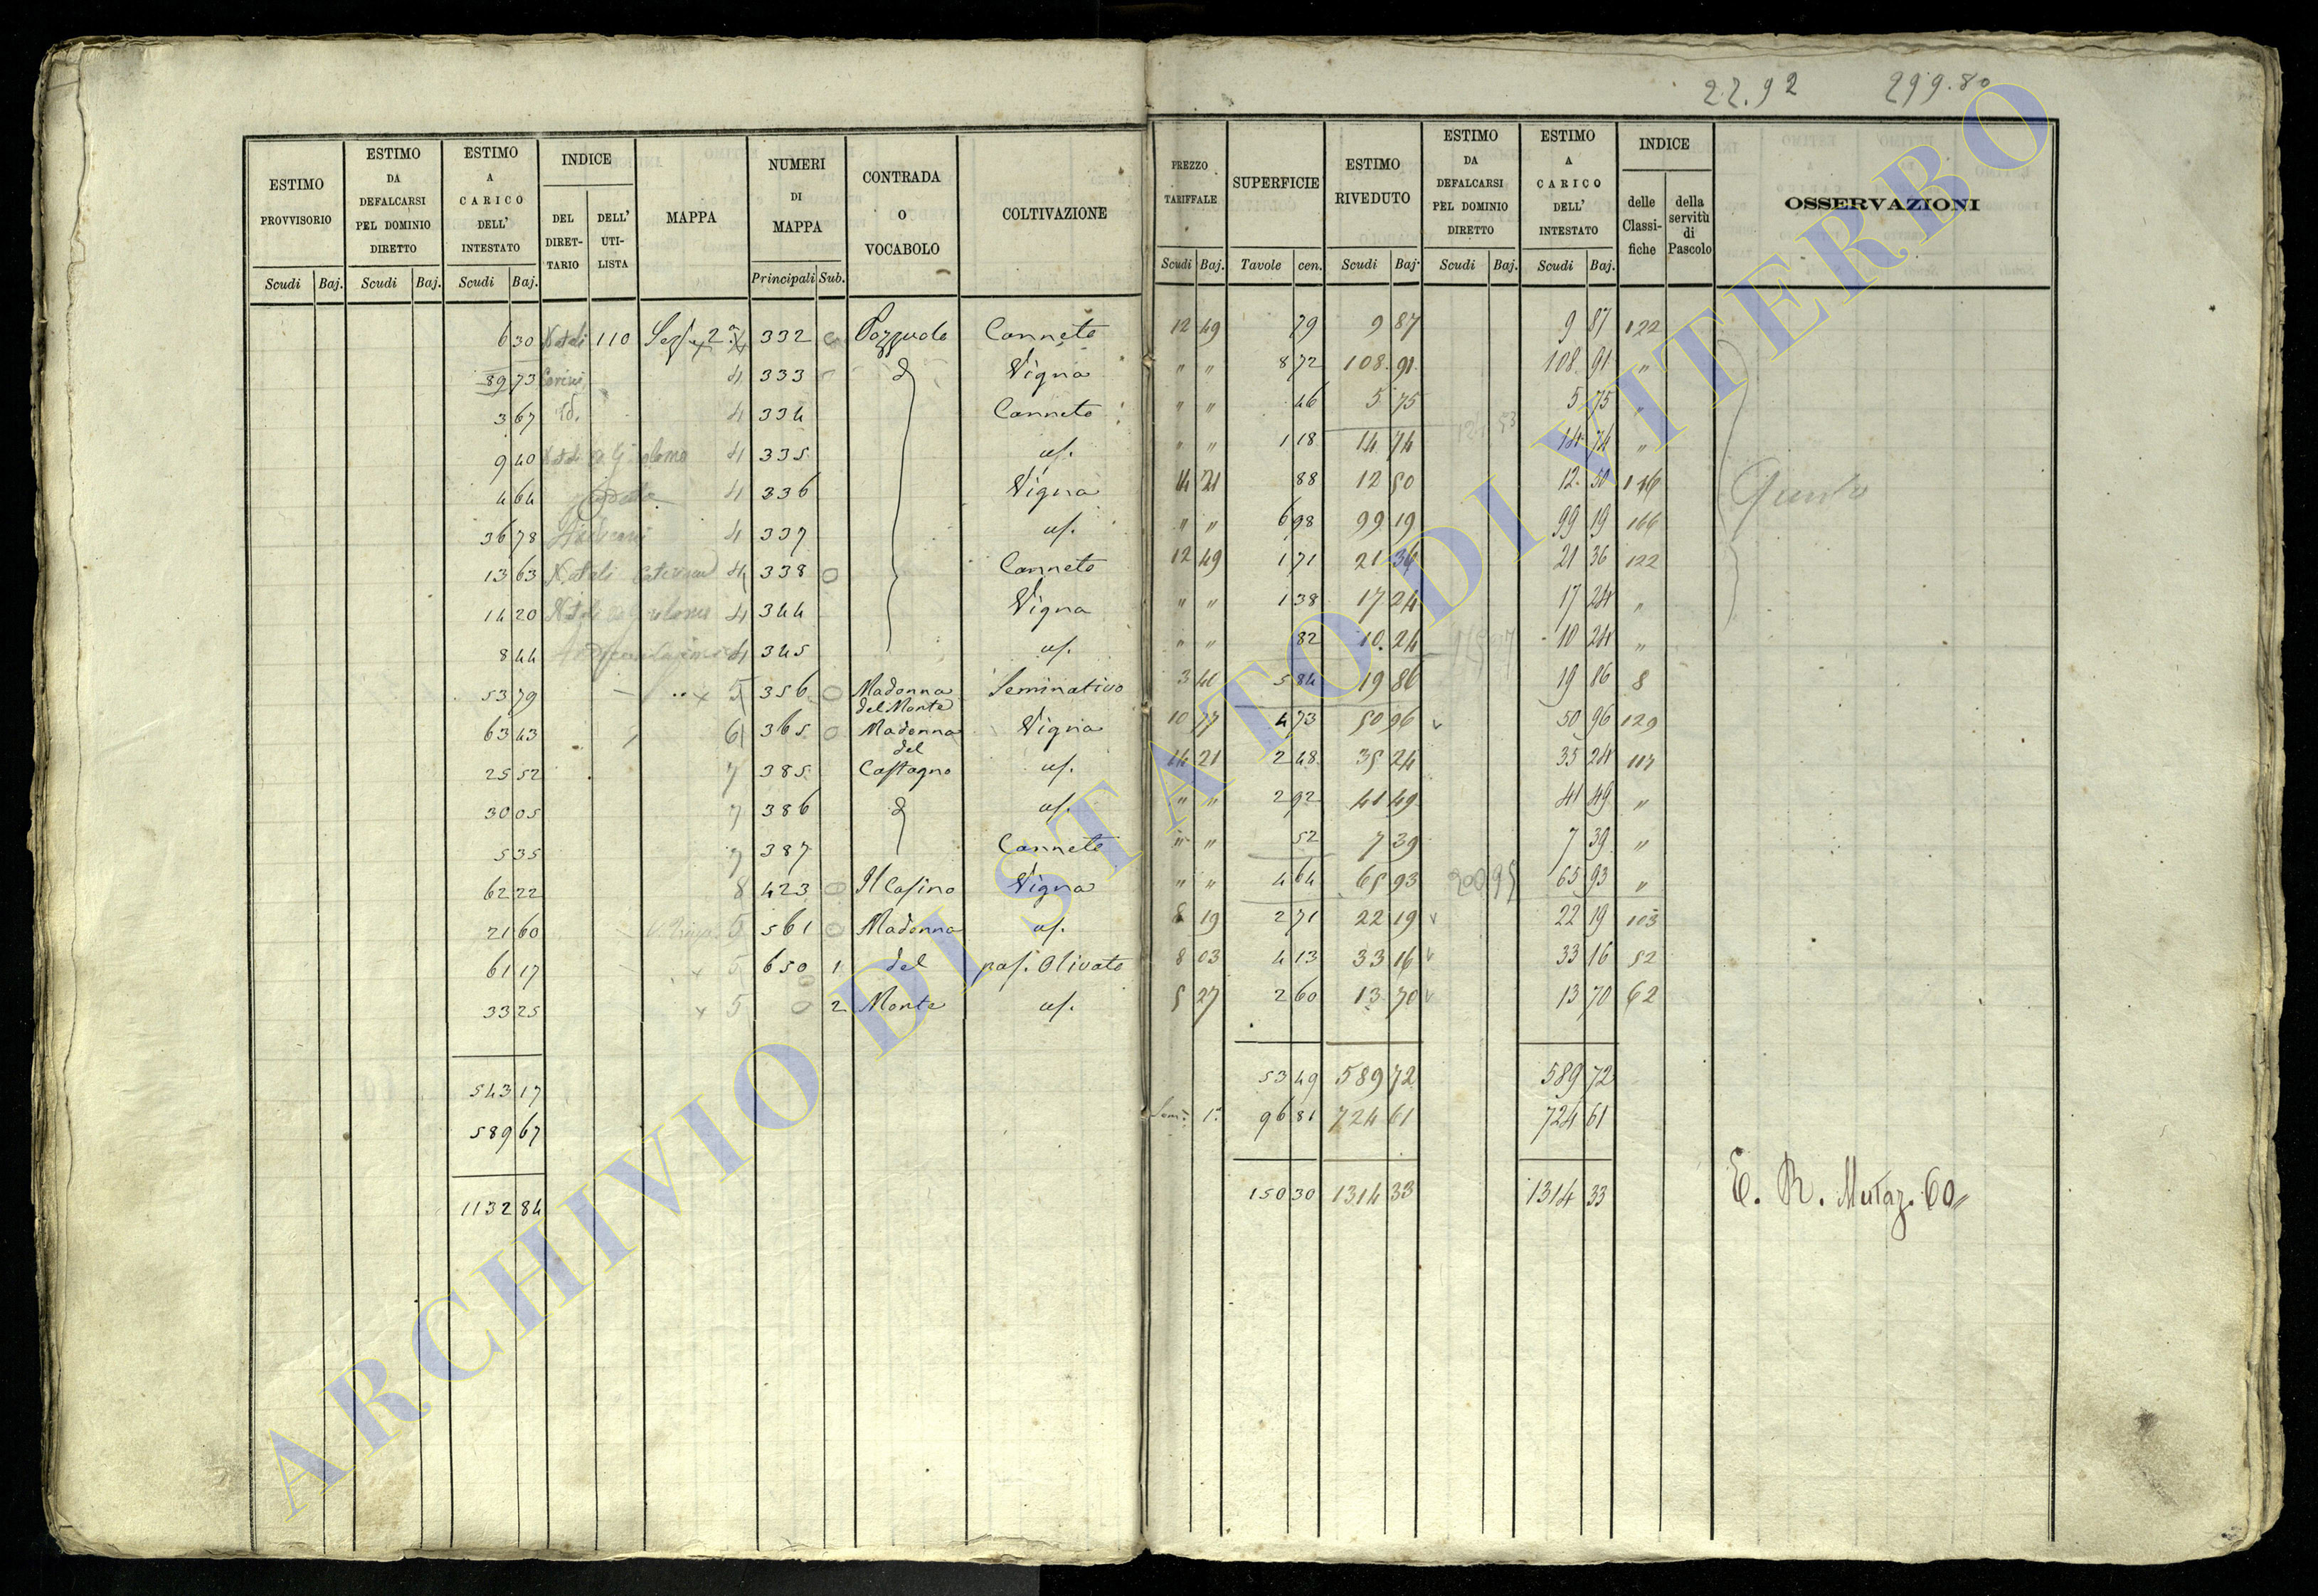 22.92 299.80
ESTIMO PROVVISORIO | ESTIMO DA DEFALCARSI PEL DOMINIO DIRETTO | ESTIMO A CARICO DELL' INTESTATO | INDICE DEL DIRETTARIO | DELL' UTILISTA | MAPPA | NUMERI DI MAPPA | CONTRADA O VOCABOLO | COLTIVAZIONE
Scudi | Baj. | Scudi | Baj. | Scudi | Baj. | Principali | Sub.
6 30 Natali 110 Sez.e 2.a 332 Pozzuolo Canneto
89 73 4 333 d Vigna
3 67 id. 4 334 Canneto
9 40 4 335 us.
4 64 4 336 Vigna
36 78 4 337 us.
13 63 Natali Caterina 4 338 0 Canneto
14 20 4 344 Vigna
8 44 4 345 us.
53 79 x 5 356 0 Madonna del Monte Seminativo
63 43 6 365 0 Madonna del Vigna
25 52 7 385 Castagno us.
30 05 7 386 d us.
5 35 7 387 Canneto
62 22 8 423 0 Il Casino Vigna
21 60 5 561 0 Madonna us.
61 17 x 5 650 1 del pas. Olivato
33 25 x 5 0 2 Monte us.
543 17
589 67
1132 84
PREZZO TARIFFALE | SUPERFICIE | ESTIMO RIVEDUTO | ESTIMO DA DEFALCARSI PEL DOMINIO DIRETTO | ESTIMO A CARICO DELL' INTESTATO | INDICE delle Classifiche | della servitù di Pascolo | OSSERVAZIONI
Scudi | Baj. | Tavole | cen. | Scudi | Baj. | Scudi | Baj. | Scudi | Baj.
12 49 79 9 87 9 87 122
" " 8 72 108 91 108 91 "
" " 46 5 75 5 75 "
" " 1 18 14 74 14 74 "
14 21 88 12 50 12 50
" " 6 98 99 19 99 19 166
12 49 1 71 21 36 21 36 122
" " 1 38 17 24 17 24 "
" " 82 10 24 10 24 "
3 40 5 84 19 86 19 86 8
10 77 4 73 50 96 50 96 129
14 21 2 48 35 24 35 24 117
" " 2 92 41 49 41 49 "
" " 52 7 39 7 39 "
" " 4 64 65 93 200 95 65 93 "
8 19 2 71 22 19 22 19 113
8 03 4 13 33 16 33 16 52
5 27 2 60 13 70 13 70 62
53 49 589 72 589 72
Som. 1.a 96 81 724 61 724 61
150 30 1314 33 1314 33
E. R. Mutaz. 60
ARCHIVIO DI STATO DI VITERBO